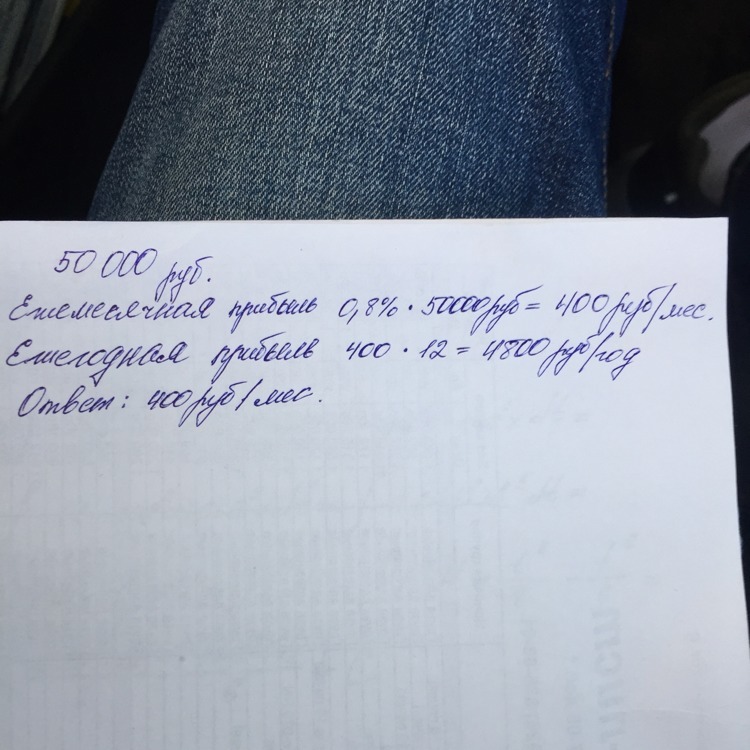 50 000 руб.
Ежемесячная прибыль 0,8% · 50000 руб = 400 руб/мес.
Ежегодная прибыль 400 · 12 = 4800 руб/год
Ответ: 400 руб/мес.